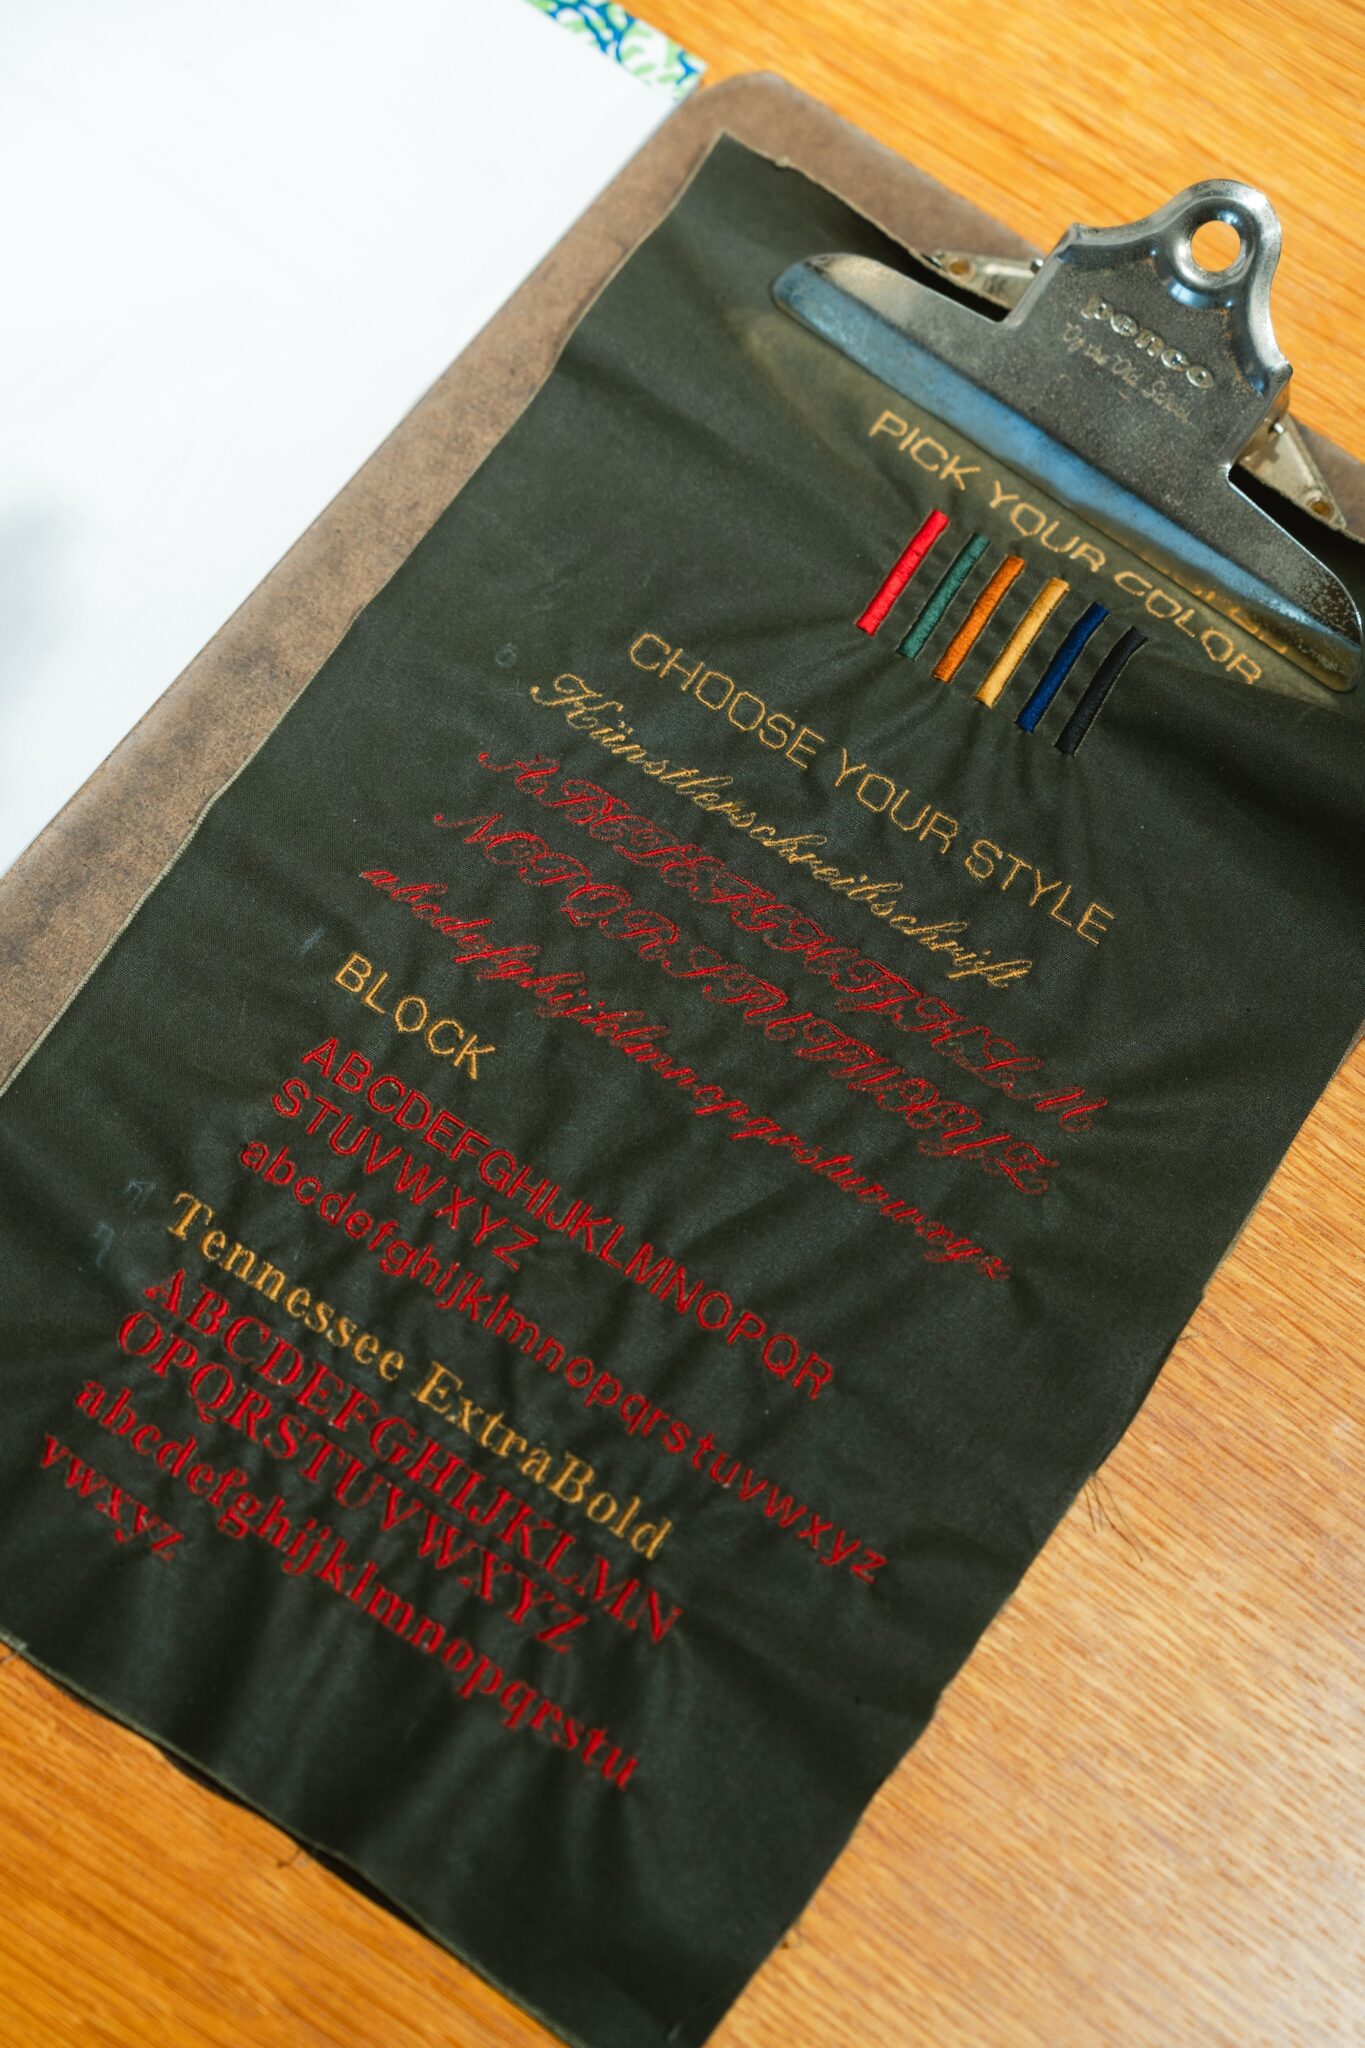 penco
PICK YOUR COLOR
CHOOSE YOUR STYLE
Künstlerschreibschrift
ABCDEFGHIJKLM
NOPQRSTUVWXYZ
abcdefghijklmnopqrstuvwxyz
BLOCK
ABCDEFGHIJKLMNOPQR
STUVWXYZ
abcdefghijklmnopqrstuvwxyz
Tennessee ExtraBold
ABCDEFGHIJKLMN
OPQRSTUVWXYZ
abcdefghijklmnopqrstu
vwxyz